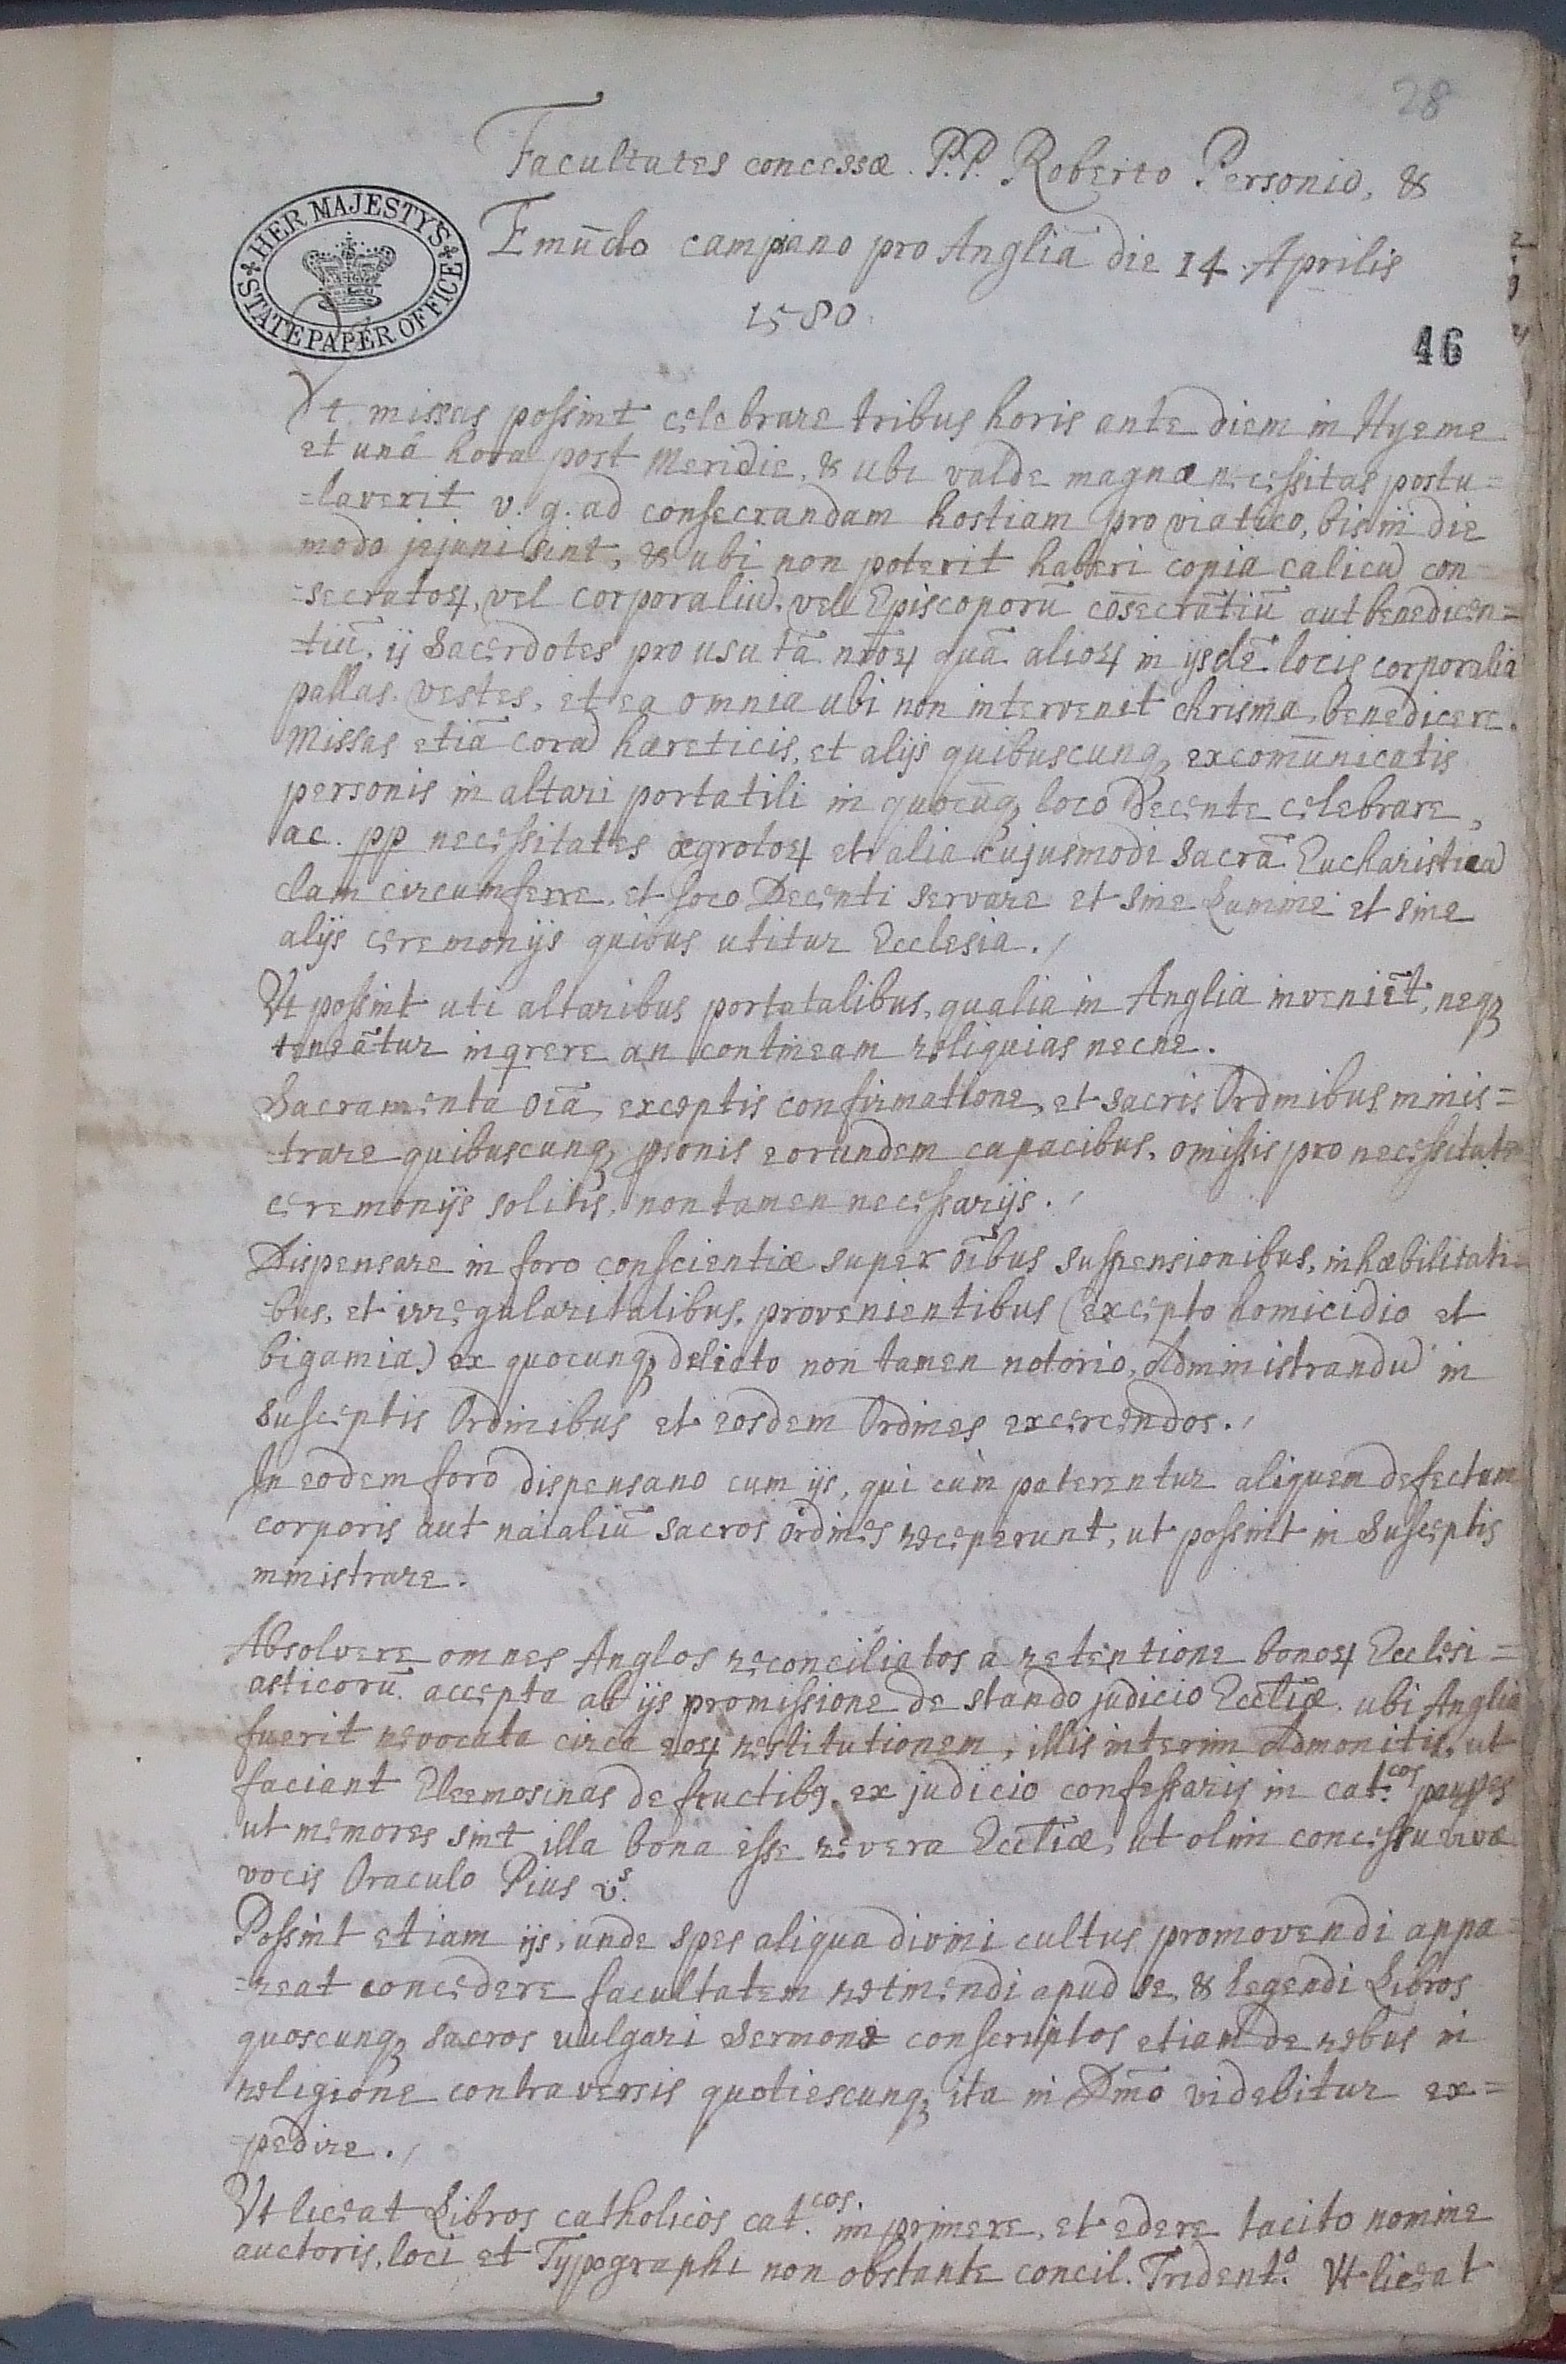 28
Facultates concessæ P.P. Roberto Personio, &
Emūdo campiano pro Angliā die 14 Aprilis
1580
HER MAJESTY'S
STATE PAPER OFFICE
46
Vt missas possint celebrare tribus horis ante diem in Hyeme
et unâ hora post Meridiē, & ubi valde magna necessitas postu=
=laverit v. g. ad consecrandam hostiam pro viatico, bis in die
modo jejuni sint, & ubi non poterit haberi copia calicū con=
=secratoꝝ, vel corporaliū, vel Episcoporū cōsecrātiū aut benedicen=
=tiū, ij Sacerdotes pro usu tā nr̄oꝝ quā alioꝝ in ijsdē locis corporalia
pallas, vestes, et ea omnia ubi non intervenit chrisma, benedicere.
Missas etiā corā hæreticis, et alijs quibuscunqꝫ excomūnicatis
personis in altari portatili in quocūqꝫ loco Decente celebrare,
ac pp necessitates ægrotoꝝ et alia cujusmodi Sacrā Eucharistiā
clam circumferre, et loco Decenti servare et sine Lumine et sine
alijs ceremonijs quibus utitur Ecclesia. /
Vt possint uti altaribus portatalibus, qualia in Anglia inveniēt, neqꝫ
teneātur inqrere an contineam reliquias necne.
Sacramenta oīa, exceptis confirmatione, et sacris Ordinibus minis=
=trare quibuscunqꝫ psonis eorundem capacibus, omissis pro necessitate
ceremonijs solitis, non tamen necessarijs. /
Dispensare in foro conscientiæ super oībus suspensionibus, inhabilitati=
=bus, et irregularitatibus, provenientibus (excepto homicidio et
bigamia) ex quocunqꝫ delicto non tamen notorio, Administrandū in
susceptis Ordinibus et eosdem Ordines exercendos. /
In eodem foro dispensano cum ijs, qui cùm paterentur aliquem defectum
corporis aut natraliū sacros ordines receperunt, ut possint in Susceptis
ministrare.
Absolvere omnes Anglos reconciliatos a retentione bonoꝝ Ecclesi=
asticorū accepta ab ijs promissione de stando judicio Eccl̄iæ ubi Anglia
fuerit revocata circa eoꝝ restitutionem, illis interim Admonitis, ut
faciant Eleemosinas de fructibꝯ ex judicio confessaris in cat.cos paupes
ut memores sint illa bona esse revera Eccl̄iæ, ut olim concessu vivæ
vocis Oraculo Pius v.s
Possint etiam ijs, unde spes aliqua divini cultus promovendi appa=
=reat concedere facultatem retinendi apud se, & legendi Libros
quoscunqꝫ sacros vulgari Sermone conscriptos etiam de rebus in
religione contraversis quotiescunqꝫ ita in Dm̄o videbitur ex=
=pedire. /
Vt liceat Libros catholicos cat.cos imprimere, et edere tacito nomine
auctoris, loci et Typographi non obstante concil. Trident.o Vt liceat